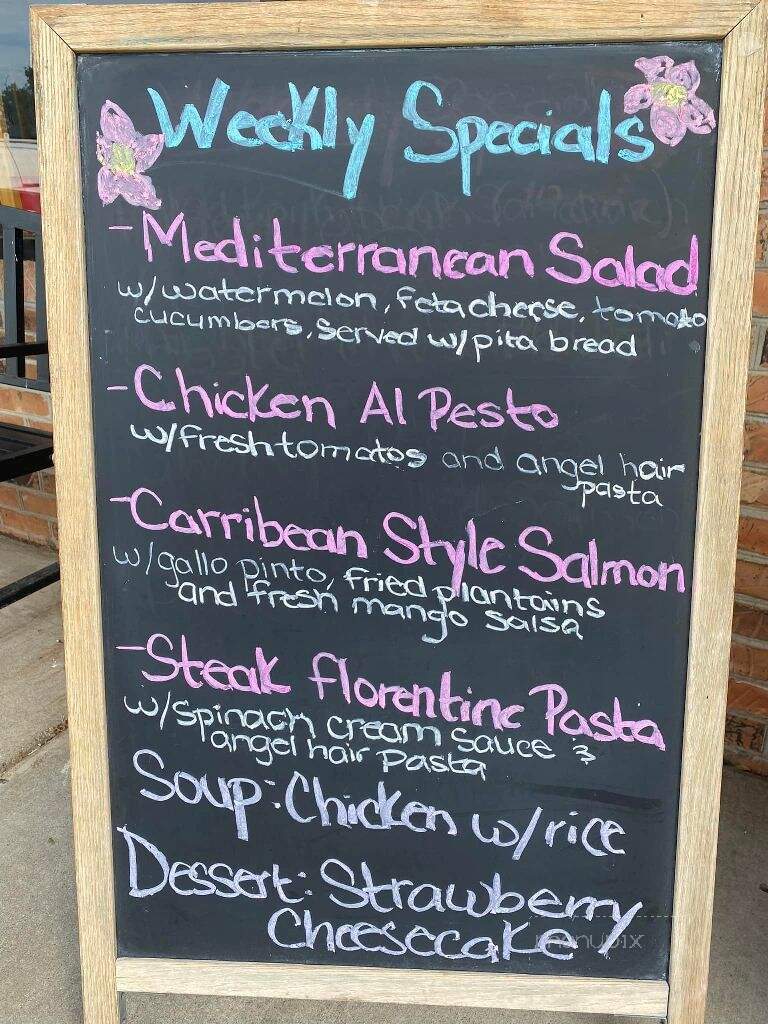 Weekly Specials
- Mediterranean Salad
w/watermelon, feta cheese, tomato
cucumbers, served w/pita bread
- Chicken Al Pesto
w/fresh tomatos and angel hair
pasta
- Carribean Style Salmon
w/gallo pinto, fried plantains
and fresh mango salsa
- Steak florentine Pasta
w/spinach cream sauce &
angel hair pasta
Soup: Chicken w/rice
Dessert: Strawberry
Cheesecake
menupix